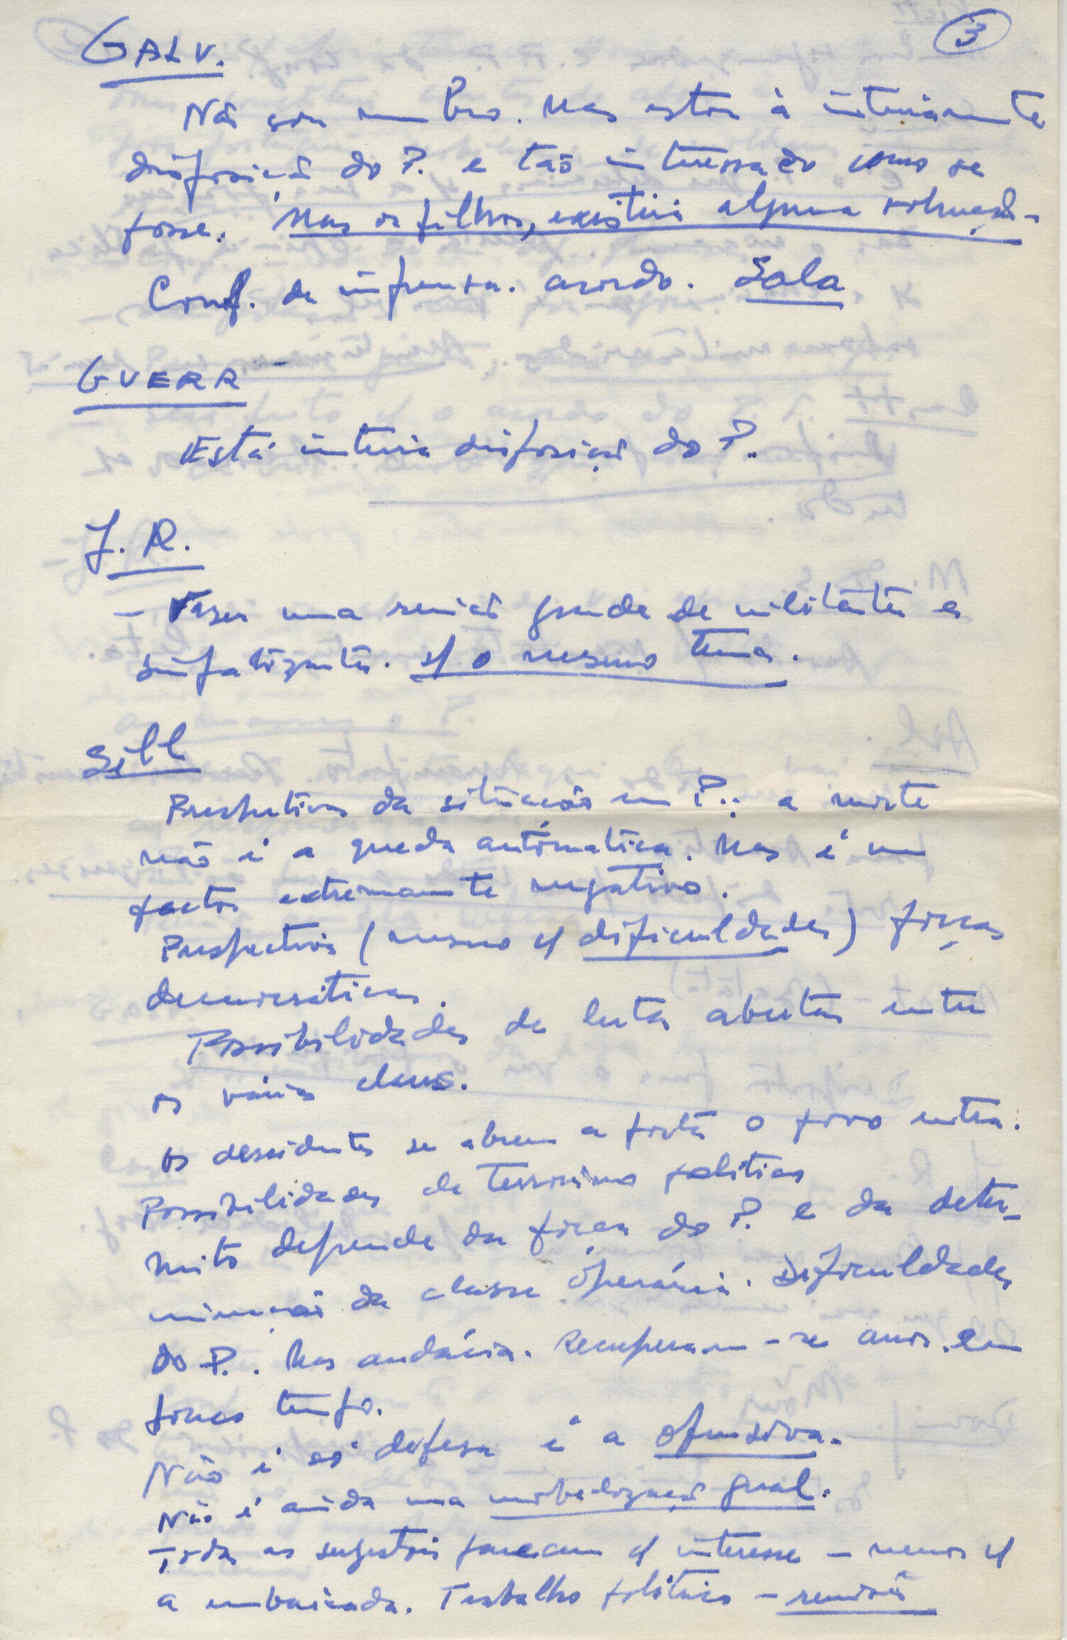 3
GALV.
Não sou membro. Mas estou à inteiramente
disposição do P. e tão interessado como se
fosse. Mas os filhos, existiu alguma
Conf. de imprensa. acordo. Sala
GUERR
Está inteira disposição do P.
J. R.
- Fazer uma reunião grande de militantes e
simpatizantes. s/ o mesmo tema.
Sill
Perspectivas da situação em P.: a morte
não é a queda automática. Mas é um
factor extremamente negativo.
Perspectivas (mesmo c/ dificuldades) forças
democráticas.
Possibilidades de lutas abertas entre
os vários clans.
Os dissidentes se abrem a porta o povo entra.
Possibilidades de terrorismo político
Muito depende da força do P. e da deter-
minação da classe operária. Dificuldades
do P. Mas audácia. Recuperam-se anos em
pouco tempo.
Não é só defesa é a ofensiva.
Não é ainda uma mobilização geral.
Todas as sugestões parecem c/ interesse - menos c/
a embaixada. Trabalho político - reunião